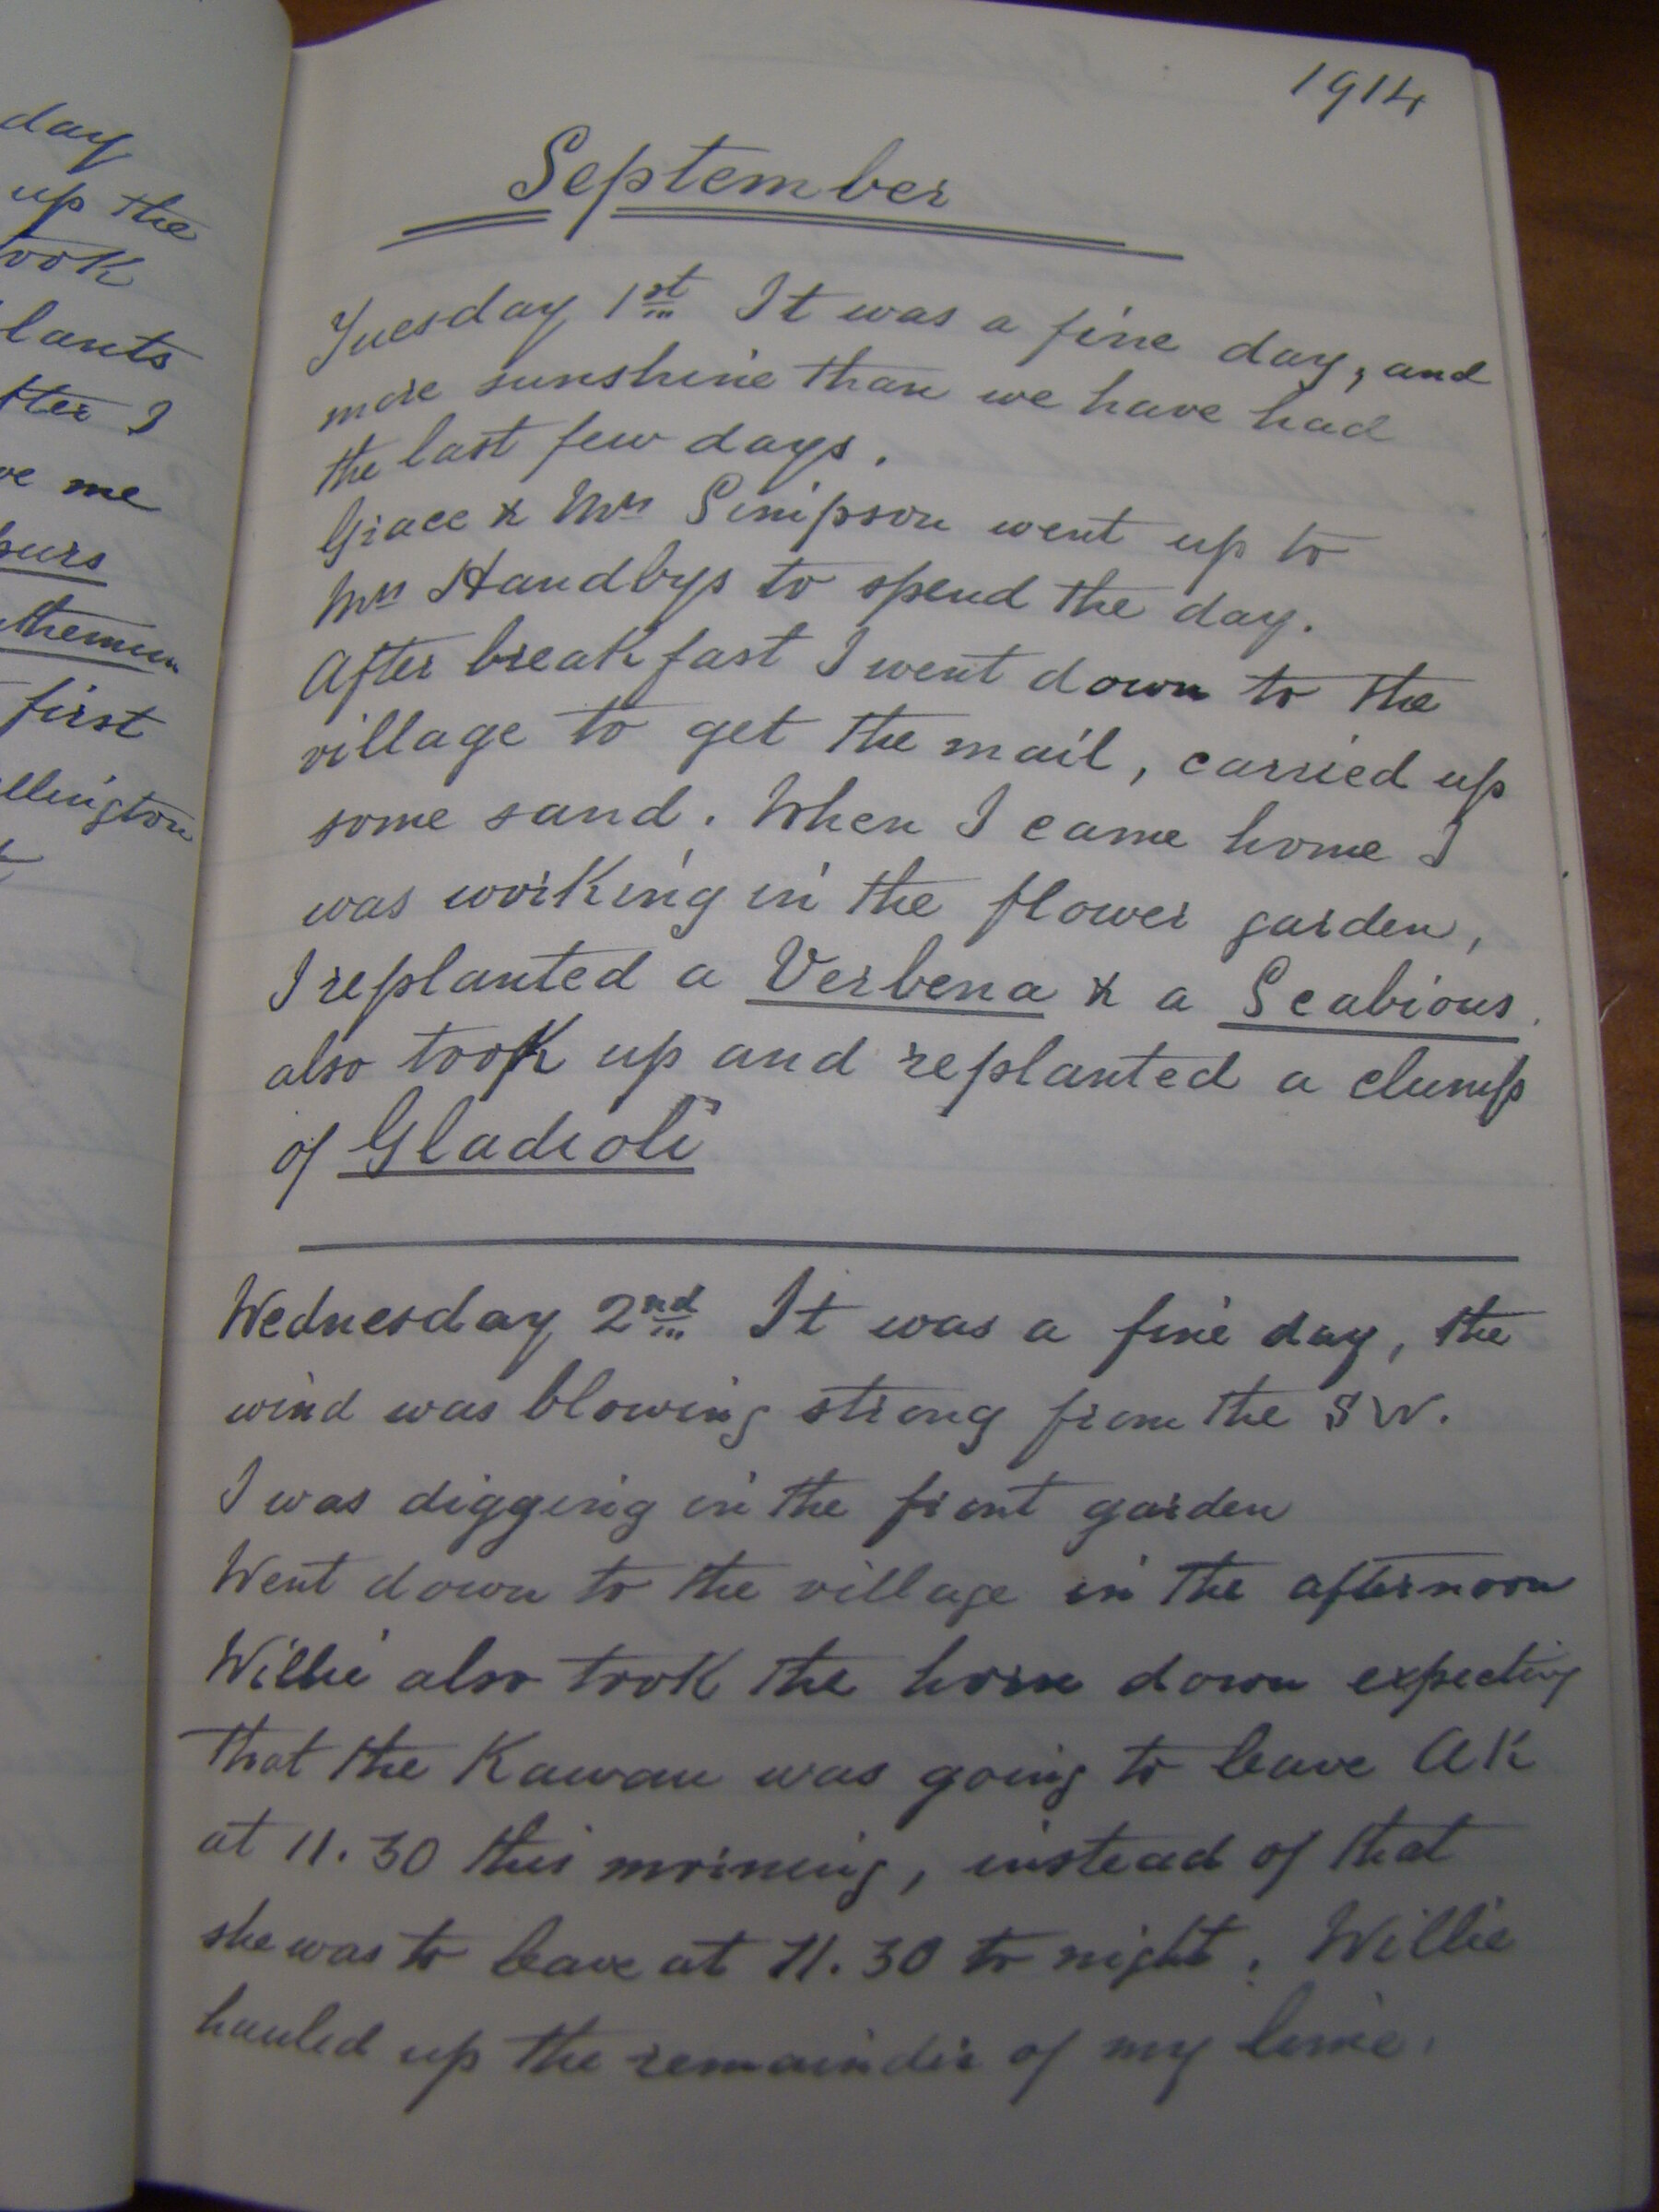 day
up the
ook
lants
tter I
ve me
ours
themum
first
llington
1914
September
Tuesday 1st It was a fine day, and
more sunshine than we have had
the last few days.
Grace & Mrs Simpson went up to
Mrs Handbys to spend the day.
After breakfast I went down to the
village to get the mail, carried up
some sand. When I came home I
was working in the flower garden,
I replanted a Verbena & a Scabious.
also took up and replanted a clump
of Gladioli
Wednesday 2nd It was a fine day, the
wind was blowing strong from the SW.
I was digging in the front garden
Went down to the village in the afternoon
Willie also took the horse down expecting
that the Kawau was going to leave AK
at 11.30 this morning, instead of that
she was to leave at 11.30 to night. Willie
hauled up the remainder of my lime.